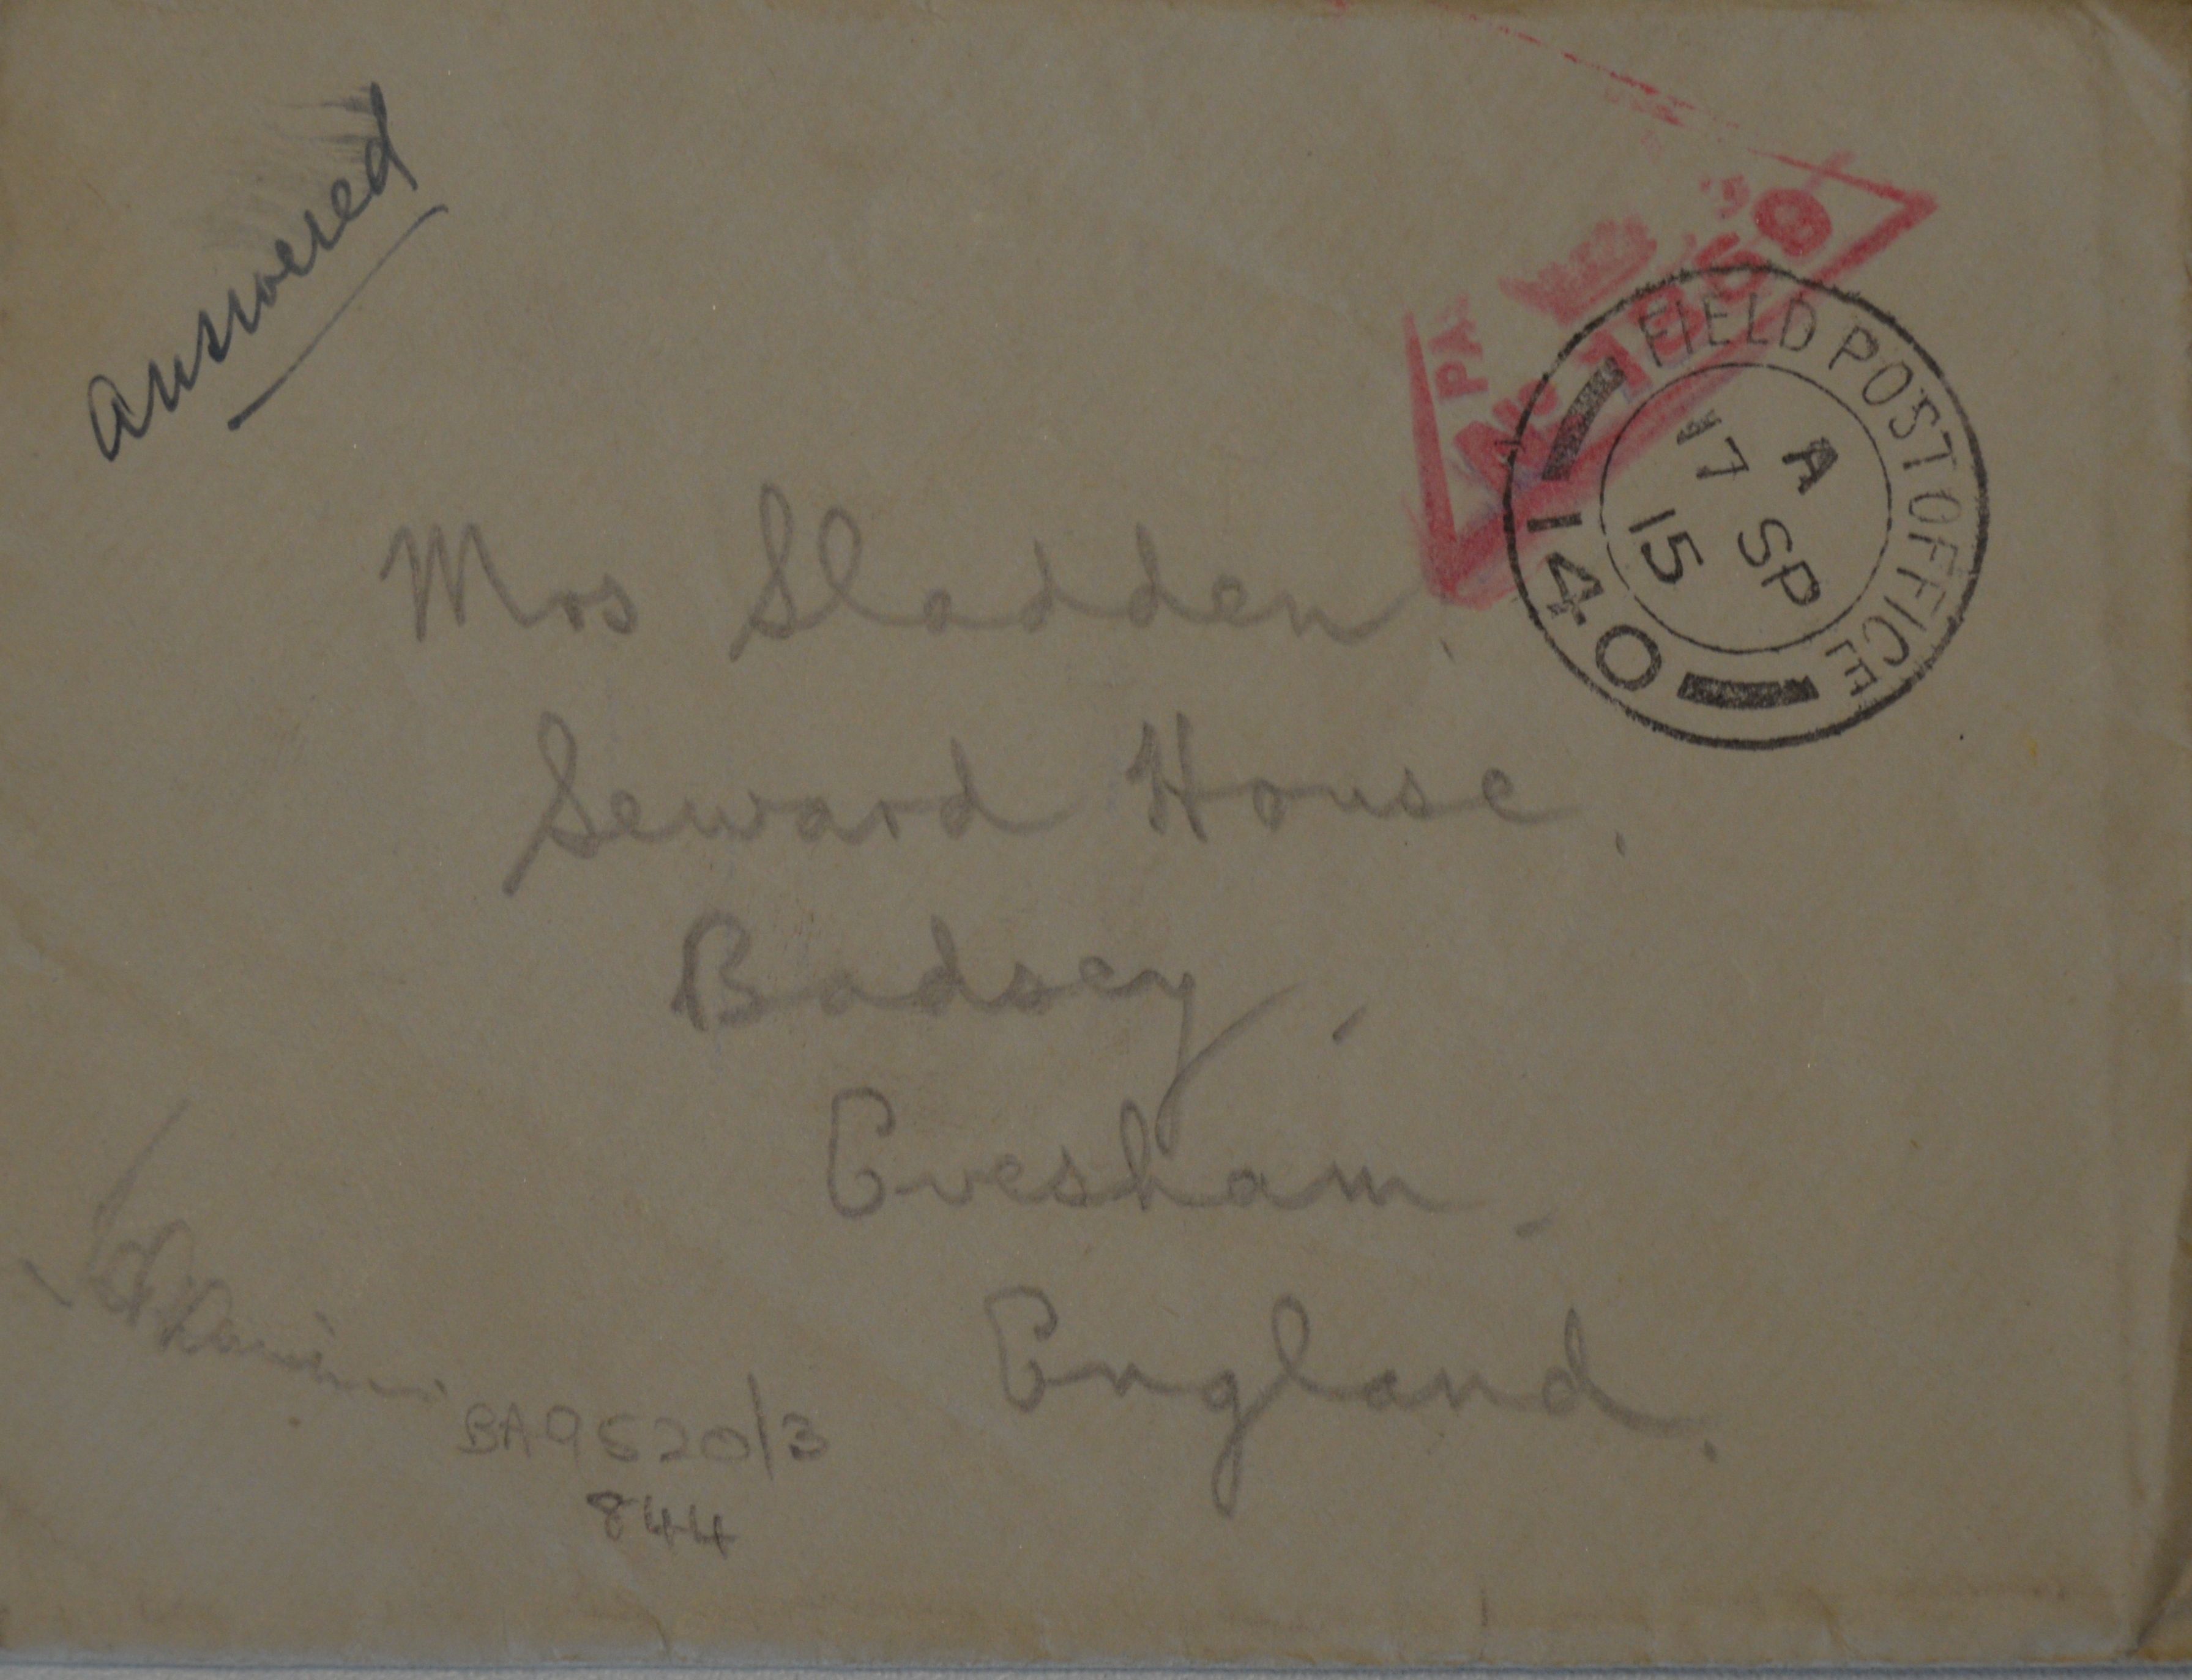 answered
PA
No 1859
FIELD POST OFFICE
A
17 SP
15
140
Mrs Sladden.
Seward House,
Badsey,
Evesham.
England.
BA9520/3
844